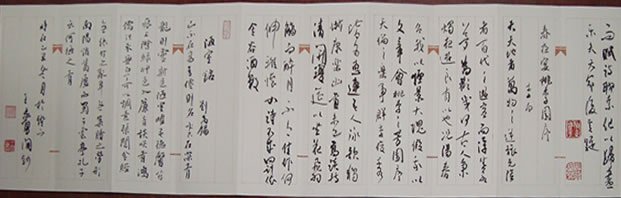 而賦詩聊乘化以歸盡
樂夫天命復奚疑
春夜宴桃李園序
李白
夫天地者萬物之逆旅光陰
者百代之過客而浮生若
夢為歡幾何古人秉
燭夜遊良有以也況陽春
召我以煙景大塊假我以
文章會桃李之芳園序
天倫之樂事群季俊秀
皆為惠連吾人詠歌獨
慚康樂幽賞未已高談轉
清開瓊筵以坐花飛羽
觴而醉月不有佳作何
伸雅懷如詩不成罰依
金谷酒數
陋室銘 劉禹錫
山不在高有仙則名水不在深有
龍則靈斯是陋室惟吾德馨苔
痕上階綠草色入簾青談笑有鴻
儒往來無白丁可以調素琴閱金經
無絲竹之亂耳無案牘之勞形
南陽諸葛廬西蜀子雲亭孔子
云何陋之有